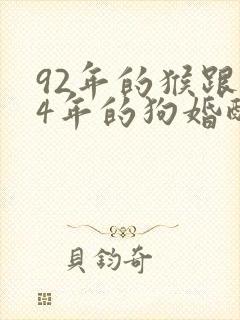 92年的猴跟
4年的狗婚
貝鈞奇